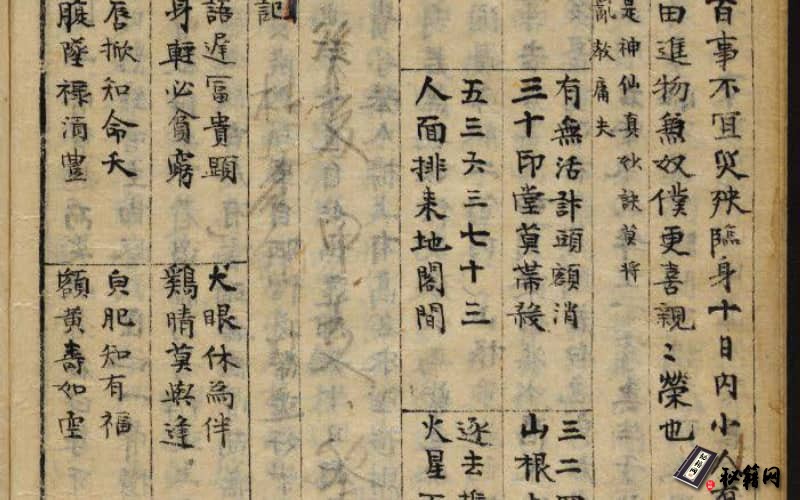 百事不宜災殃臨身十日内小人
田進物兼奴僕更喜親〻榮也
是神仙真妙訣莫将
亂教庸夫
有無活計頭額消
三十印堂莫帯殺
五三六三七十三
人面排来地閣間
三二四
山根上
逐去推
火星
記
語遲冨貴顕
身軽必貧窮
唇掀知命夭
腹墜禄湏豊
犬眼休為伴
鷄睛莫與逢
皃肥知有福
額黄壽如空
秘籍网